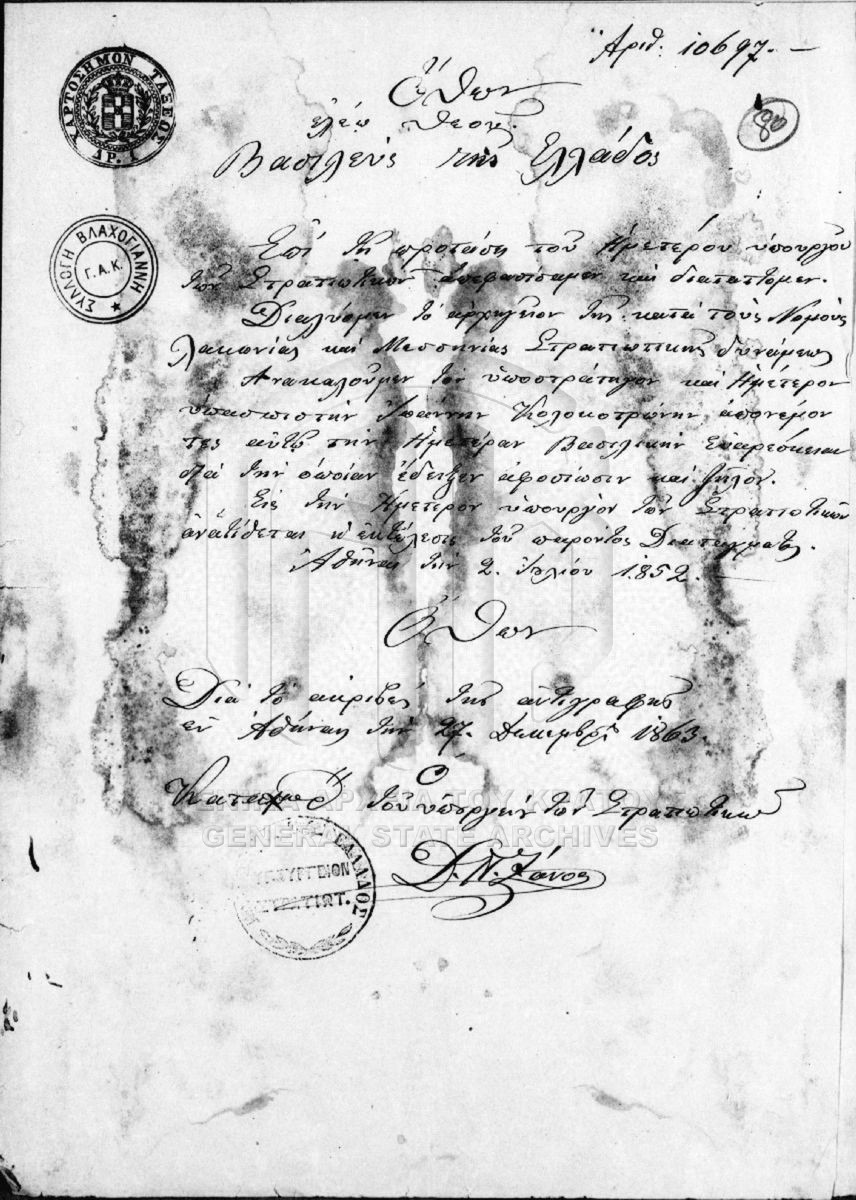 Ἀριθ. 10697.-
ΧΑΡΤΟΣΗΜΟΝ ΤΑΞΕΩΣ
ΔΡ. 1
Ὄθων
ἐλέῳ Θεοῦ.
Βασιλεὺς τῆς Ἑλλάδος
ΣΥΛΛΟΓΗ ΒΛΑΧΟΓΙΑΝΝΗ
Γ.Α.Κ.
Ἐπὶ τῇ προτάσει τοῦ Ἡμετέρου ὑπουργοῦ
τῶν Στρατιωτικῶν ἀπεφασίσαμεν καὶ διατάττομεν.
Διαλύομεν τὸ ἀρχηγεῖον τῆς κατὰ τοὺς Νομοὺς
Λακωνίας καὶ Μεσσηνίας Στρατιωτικῆς δυνάμεως
Ἀνακαλοῦμεν τὸν ὑποστράτηγον καὶ Ἡμέτερον
ὑπασπιστὴν Ἰωάννην Κολοκοτρώνην ἀπονέμον
τες αὐτῷ τὴν Ἡμετέραν Βασιλικὴν Εὐαρέσκειαν
διὰ τὴν ὁποίαν ἔδειξεν ἀφοσίωσιν καὶ ζῆλον.
Εἰς τὸν Ἡμέτερον ὑπουργὸν τῶν Στρατιωτικῶν
ἀνατίθεται ἡ ἐκτέλεσις τοῦ παρόντος Διατάγματος.
Ἀθῆναι τὴν 2. Ἰουλίου 1852.-
Ὄθων
Διὰ τὸ ἀκριβὲς τῆς ἀντιγραφῆς
ἐν Ἀθήναις τὴν 27. Δεκεμβρίου 1863.
Ὁ
τοῦ ὑπουργείου τῶν Στρατιωτικῶν
ΑΡΧΕΙΑ ΤΟΥ ΚΡΑΤΟΥΣ
GENERAL STATE ARCHIVES
ΕΛΛΑΔΟΣ
ΥΠΟΥΡΓΕΙΟΝ
ΣΤΡΑΤΙΩΤ.
Δ. Ν. Ζάνος